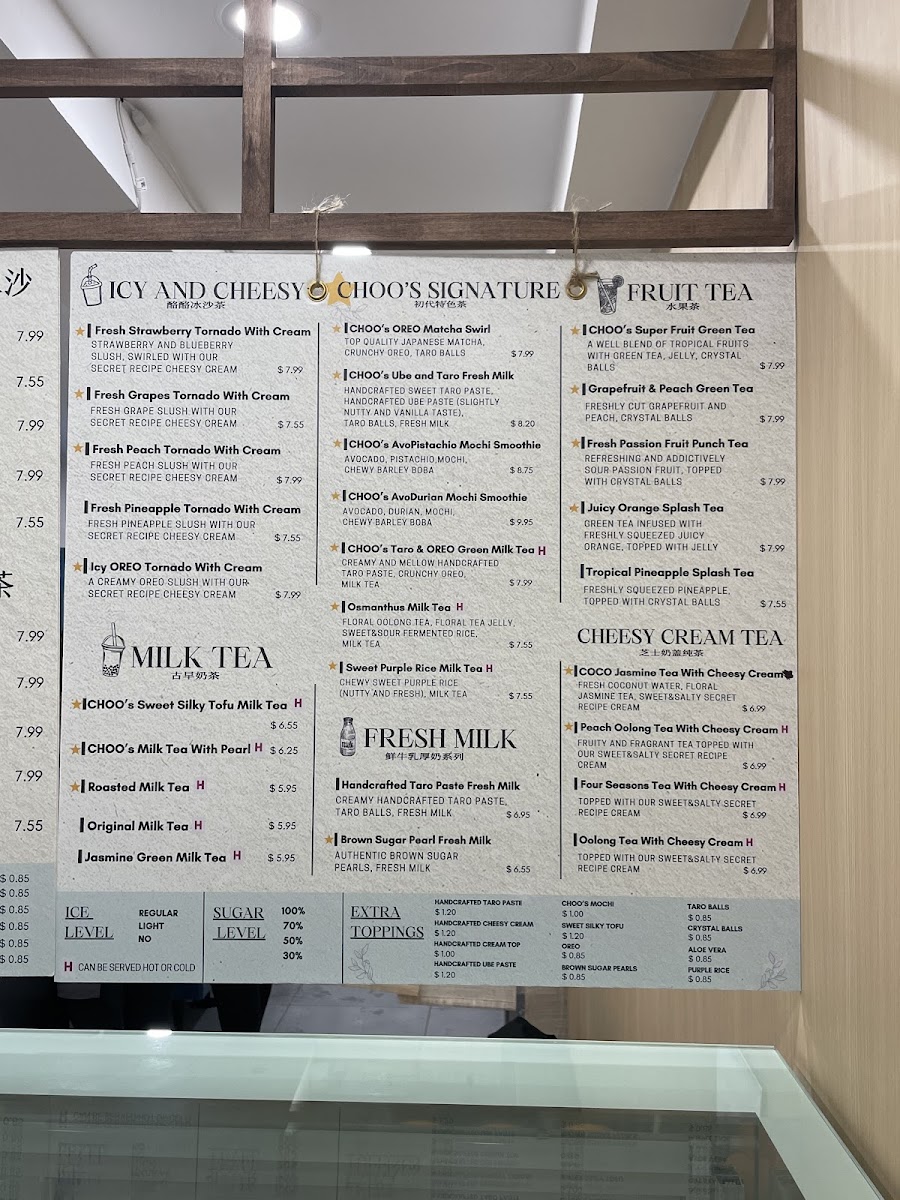 沙
7.99
7.55
7.99
7.99
7.55
茶
7.99
7.99
7.99
7.99
7.55
$ 0.85
$ 0.85
$ 0.85
$ 0.85
$ 0.85
$ 0.85
ICY AND CHEESY
酪酪冰沙茶
Fresh Strawberry Tornado With Cream
STRAWBERRY AND BLUEBERRY
SLUSH, SWIRLED WITH OUR
SECRET RECIPE CHEESY CREAM $ 7.99
Fresh Grapes Tornado With Cream
FRESH GRAPE SLUSH WITH OUR
SECRET RECIPE CHEESY CREAM $ 7.55
Fresh Peach Tornado With Cream
FRESH PEACH SLUSH WITH OUR
SECRET RECIPE CHEESY CREAM $ 7.99
Fresh Pineapple Tornado With Cream
FRESH PINEAPPLE SLUSH WITH OUR
SECRET RECIPE CHEESY CREAM $ 7.55
Icy OREO Tornado With Cream
A CREAMY OREO SLUSH WITH OUR
SECRET RECIPE CHEESY CREAM $ 7.99
MILK TEA
古早奶茶
CHOO's Sweet Silky Tofu Milk Tea H
$ 6.55
CHOO's Milk Tea With Pearl H $ 6.25
Roasted Milk Tea H $ 5.95
Original Milk Tea H $ 5.95
Jasmine Green Milk Tea H $ 5.95
CHOO'S SIGNATURE
初代特色茶
CHOO's OREO Matcha Swirl
TOP QUALITY JAPANESE MATCHA,
CRUNCHY OREO, TARO BALLS $ 7.99
CHOO's Ube and Taro Fresh Milk
HANDCRAFTED SWEET TARO PASTE,
HANDCRAFTED UBE PASTE (SLIGHTLY
NUTTY AND VANILLA TASTE),
TARO BALLS, FRESH MILK $ 8.20
CHOO's AvoPistachio Mochi Smoothie
AVOCADO, PISTACHIO,MOCHI,
CHEWY BARLEY BOBA $ 8.75
CHOO's AvoDurian Mochi Smoothie
AVOCADO, DURIAN, MOCHI,
CHEWY BARLEY BOBA $ 9.95
CHOO's Taro & OREO Green Milk Tea H
CREAMY AND MELLOW HANDCRAFTED
TARO PASTE, CRUNCHY OREO,
MILK TEA $ 7.99
Osmanthus Milk Tea H
FLORAL OOLONG TEA, FLORAL TEA JELLY,
SWEET&SOUR FERMENTED RICE,
MILK TEA $ 7.55
Sweet Purple Rice Milk Tea H
CHEWY SWEET PURPLE RICE
(NUTTY AND FRESH), MILK TEA $ 7.55
FRESH MILK
鲜牛乳厚奶系列
Handcrafted Taro Paste Fresh Milk
CREAMY HANDCRAFTED TARO PASTE,
TARO BALLS, FRESH MILK $ 6.95
Brown Sugar Pearl Fresh Milk
AUTHENTIC BROWN SUGAR
PEARLS, FRESH MILK $ 6.55
FRUIT TEA
水果茶
CHOO's Super Fruit Green Tea
A WELL BLEND OF TROPICAL FRUITS
WITH GREEN TEA, JELLY, CRYSTAL
BALLS $ 7.99
Grapefruit & Peach Green Tea
FRESHLY CUT GRAPEFRUIT AND
PEACH, CRYSTAL BALLS $ 7.99
Fresh Passion Fruit Punch Tea
REFRESHING AND ADDICTIVELY
SOUR PASSION FRUIT, TOPPED
WITH CRYSTAL BALLS $ 7.99
Juicy Orange Splash Tea
GREEN TEA INFUSED WITH
FRESHLY SQUEEZED JUICY
ORANGE, TOPPED WITH JELLY $ 7.99
Tropical Pineapple Splash Tea
FRESHLY SQUEEZED PINEAPPLE,
TOPPED WITH CRYSTAL BALLS $ 7.55
CHEESY CREAM TEA
芝士奶盖纯茶
COCO Jasmine Tea With Cheesy Cream
FRESH COCONUT WATER, FLORAL
JASMINE TEA, SWEET&SALTY SECRET
RECIPE CREAM $ 6.99
Peach Oolong Tea With Cheesy Cream H
FRUITY AND FRAGRANT TEA TOPPED WITH
OUR SWEET&SALTY SECRET RECIPE
CREAM $ 6.99
Four Seasons Tea With Cheesy Cream H
TOPPED WITH OUR SWEET&SALTY SECRET
RECIPE CREAM $ 6.99
Oolong Tea With Cheesy Cream H
TOPPED WITH OUR SWEET&SALTY SECRET
RECIPE CREAM $ 6.99
ICE
LEVEL
REGULAR
LIGHT
NO
H CAN BE SERVED HOT OR COLD
SUGAR
LEVEL
100%
70%
50%
30%
EXTRA
TOPPINGS
HANDCRAFTED TARO PASTE
$ 1.20
HANDCRAFTED CHEESY CREAM
$ 1.20
HANDCRAFTED CREAM TOP
$ 1.00
HANDCRAFTED UBE PASTE
$ 1.20
CHOO'S MOCHI
$ 1.00
SWEET SILKY TOFU
$ 1.20
OREO
$ 0.85
BROWN SUGAR PEARLS
$ 0.85
TARO BALLS
$ 0.85
CRYSTAL BALLS
$ 0.85
ALOE VERA
$ 0.85
PURPLE RICE
$ 0.85